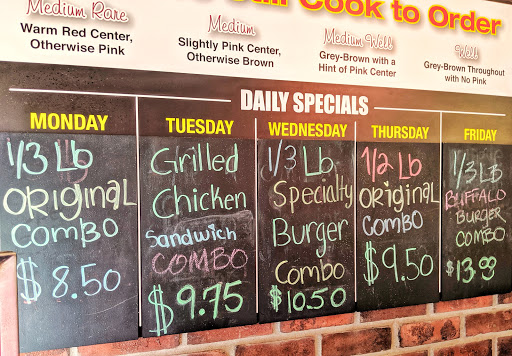 Cook to Order
Medium Rare
Warm Red Center,
Otherwise Pink
Medium
Slightly Pink Center,
Otherwise Brown
Medium Well
Grey-Brown with a
Hint of Pink Center
Well
Grey-Brown Throughout
with No Pink
DAILY SPECIALS
MONDAY
1/3 Lb
ORIGINAL
COMBO
$8.50
TUESDAY
Grilled
Chicken
Sandwich
COMBO
$9.75
WEDNESDAY
1/3 Lb.
Specialty
Burger
Combo
$10.50
THURSDAY
1/2 Lb
ORIGINAL
COMBO
$9.50
FRIDAY
1/3 LB
BUFFALO
BURGER
COMBO